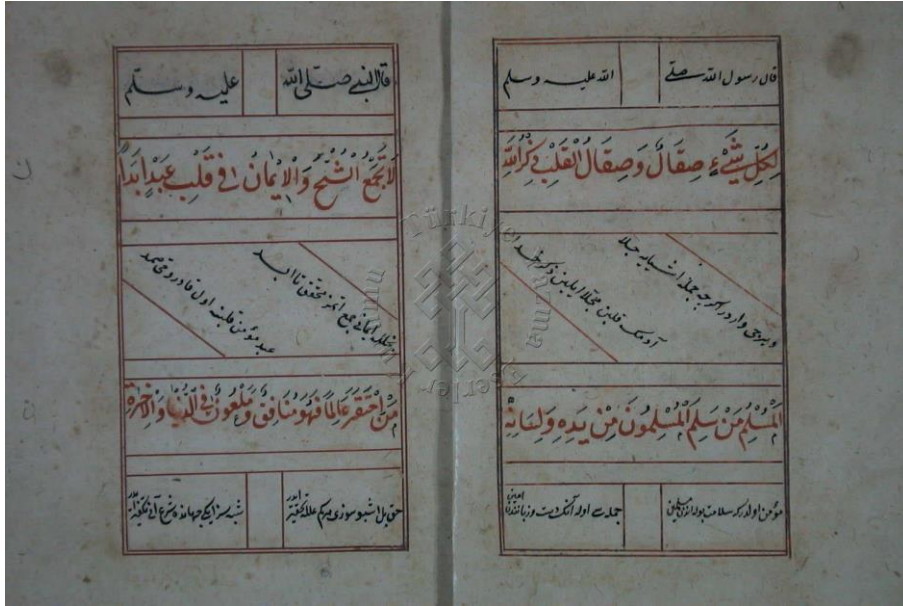 قال رسول الله صلى الله عليه وسلم
لِكُلِّ شَيْءٍ صِقَالٌ وَصِقَالُ الْقَلْبِ ذِكْرُ اللهِ
ويرجى واردر اكرجه جمله اشيايه جلا
آدمك قلبن مجلا ايلين ذكر خدا
اَلْمُسْلِمُ مَنْ سَلِمَ الْمُسْلِمُونَ مِنْ يَدِهِ وَلِسَانِهِ
مؤمن اولدر كم سلامت بوله
جمله اولا آنك دست وزباننده
قال النبي صلى الله عليه وسلم
لَا يَجْتَمِعُ الشُّحُّ وَالْإِيمَانُ فِي قَلْبِ عَبْدٍ أَبَدًا
بخلله ايمانى جمع اتمز محقق تا ابد
عبد مؤمن قلبنه اول قادر وحى صمد
مَنْ احْتَقَرَ عَالِمًا فَهُوَ مُنَافِقٌ وَمَلْعُونٌ فِي الدُّنْيَا وَالْآخِرَةِ
حق بل اشبو سوزى
شبهه سز ايكى جهانده
Türkiye Yazma Eserler Kurumu